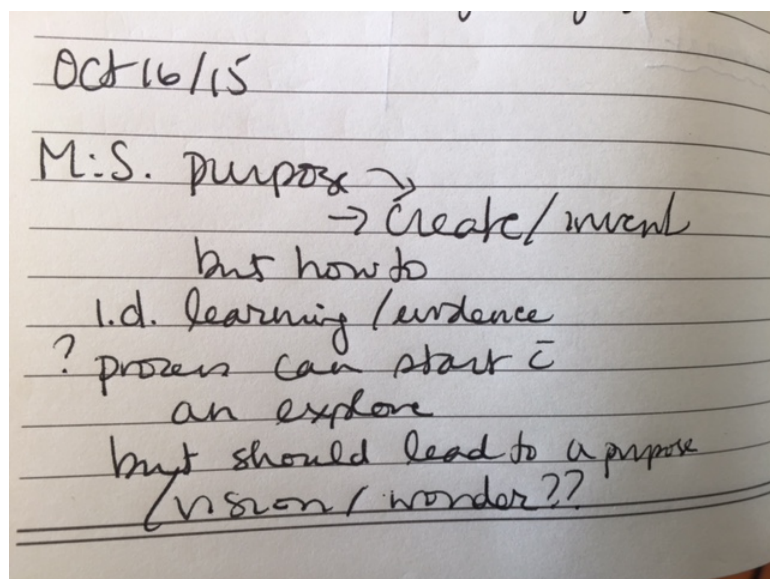 Oct 16/15
M:S. purpose →
→ Create/invent
but how to
i.d. learning/evidence
? process can start c̄
an explore
but should lead to a purpose
/vision/wonder??